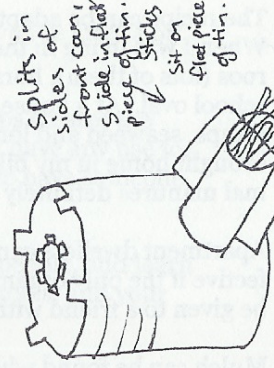 Splits in
sides of
front can,
Slide in flat
piece of tin.
Sticks
Sit on
flat piece
of tin.